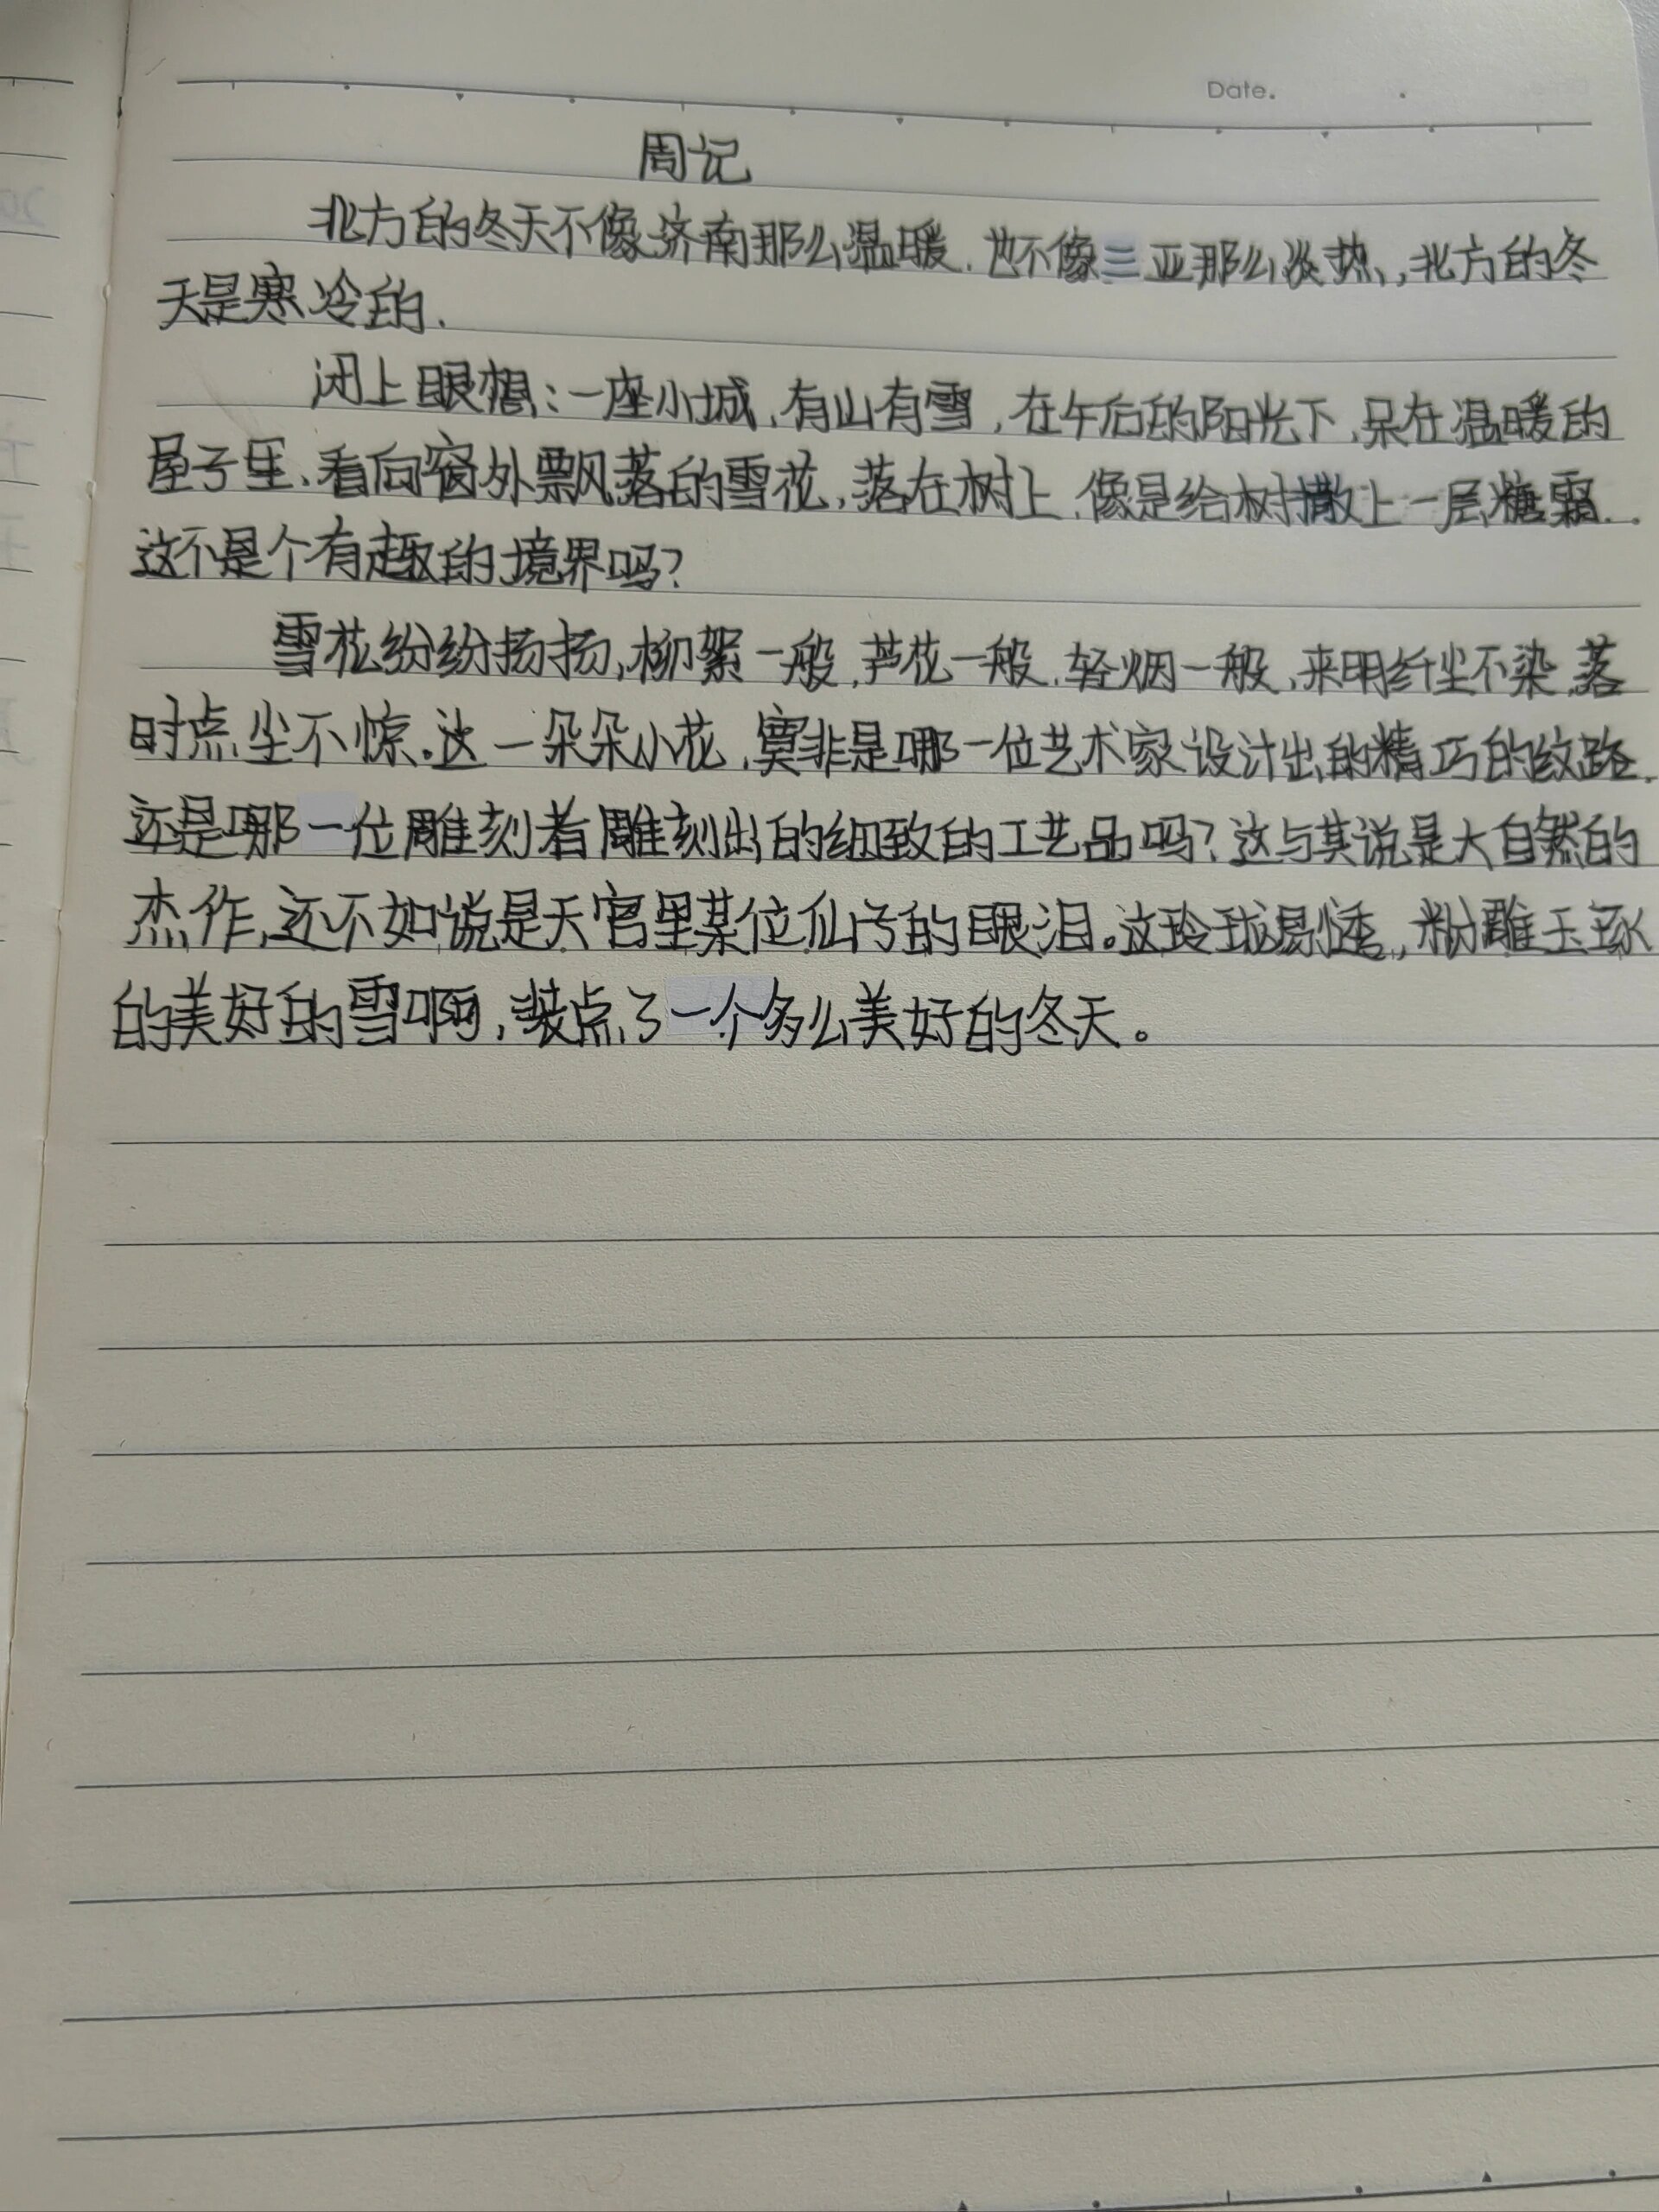 Date.
周记
北方的冬天不像济南那么温暖,也不像三亚那么炎热,北方的冬
天是寒冷的.
闭上眼想:一座小城,有山有雪,在午后的阳光下,呆在温暖的
屋子里、看向窗外飘落的雪花,落在树上,像是给树撒上一层糖霜.
这不是个有趣的境界吗?
雪花纷纷扬扬,柳絮一般,芦花一般,轻烟一般,来时纤尘不染,落
时点尘不惊。这一朵朵小花,莫非是哪一位艺术家设计出的精巧的纹路,
还是哪一位雕刻者雕刻出的细致的工艺品吗?这与其说是大自然的
杰作,还不如说是天宫里某位仙子的眼泪。这玲珑剔透,粉雕玉琢
的美好的雪啊,装点了一个多么美好的冬天。